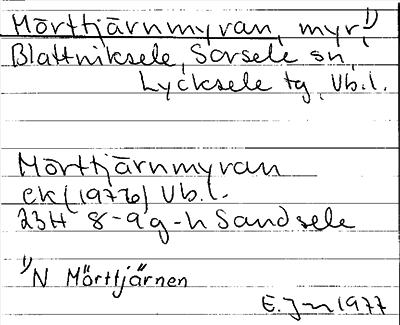 Mörttjärnmyran, myr 1)
Blattniksele, Sorsele sn,
Lycksele tg, Vb.l.
Mörttjärnmyran
ek (1976) Vb.l.
23H 8-9 g-h Sandsele
1) N Mörttjärnen
E. Jn 1977